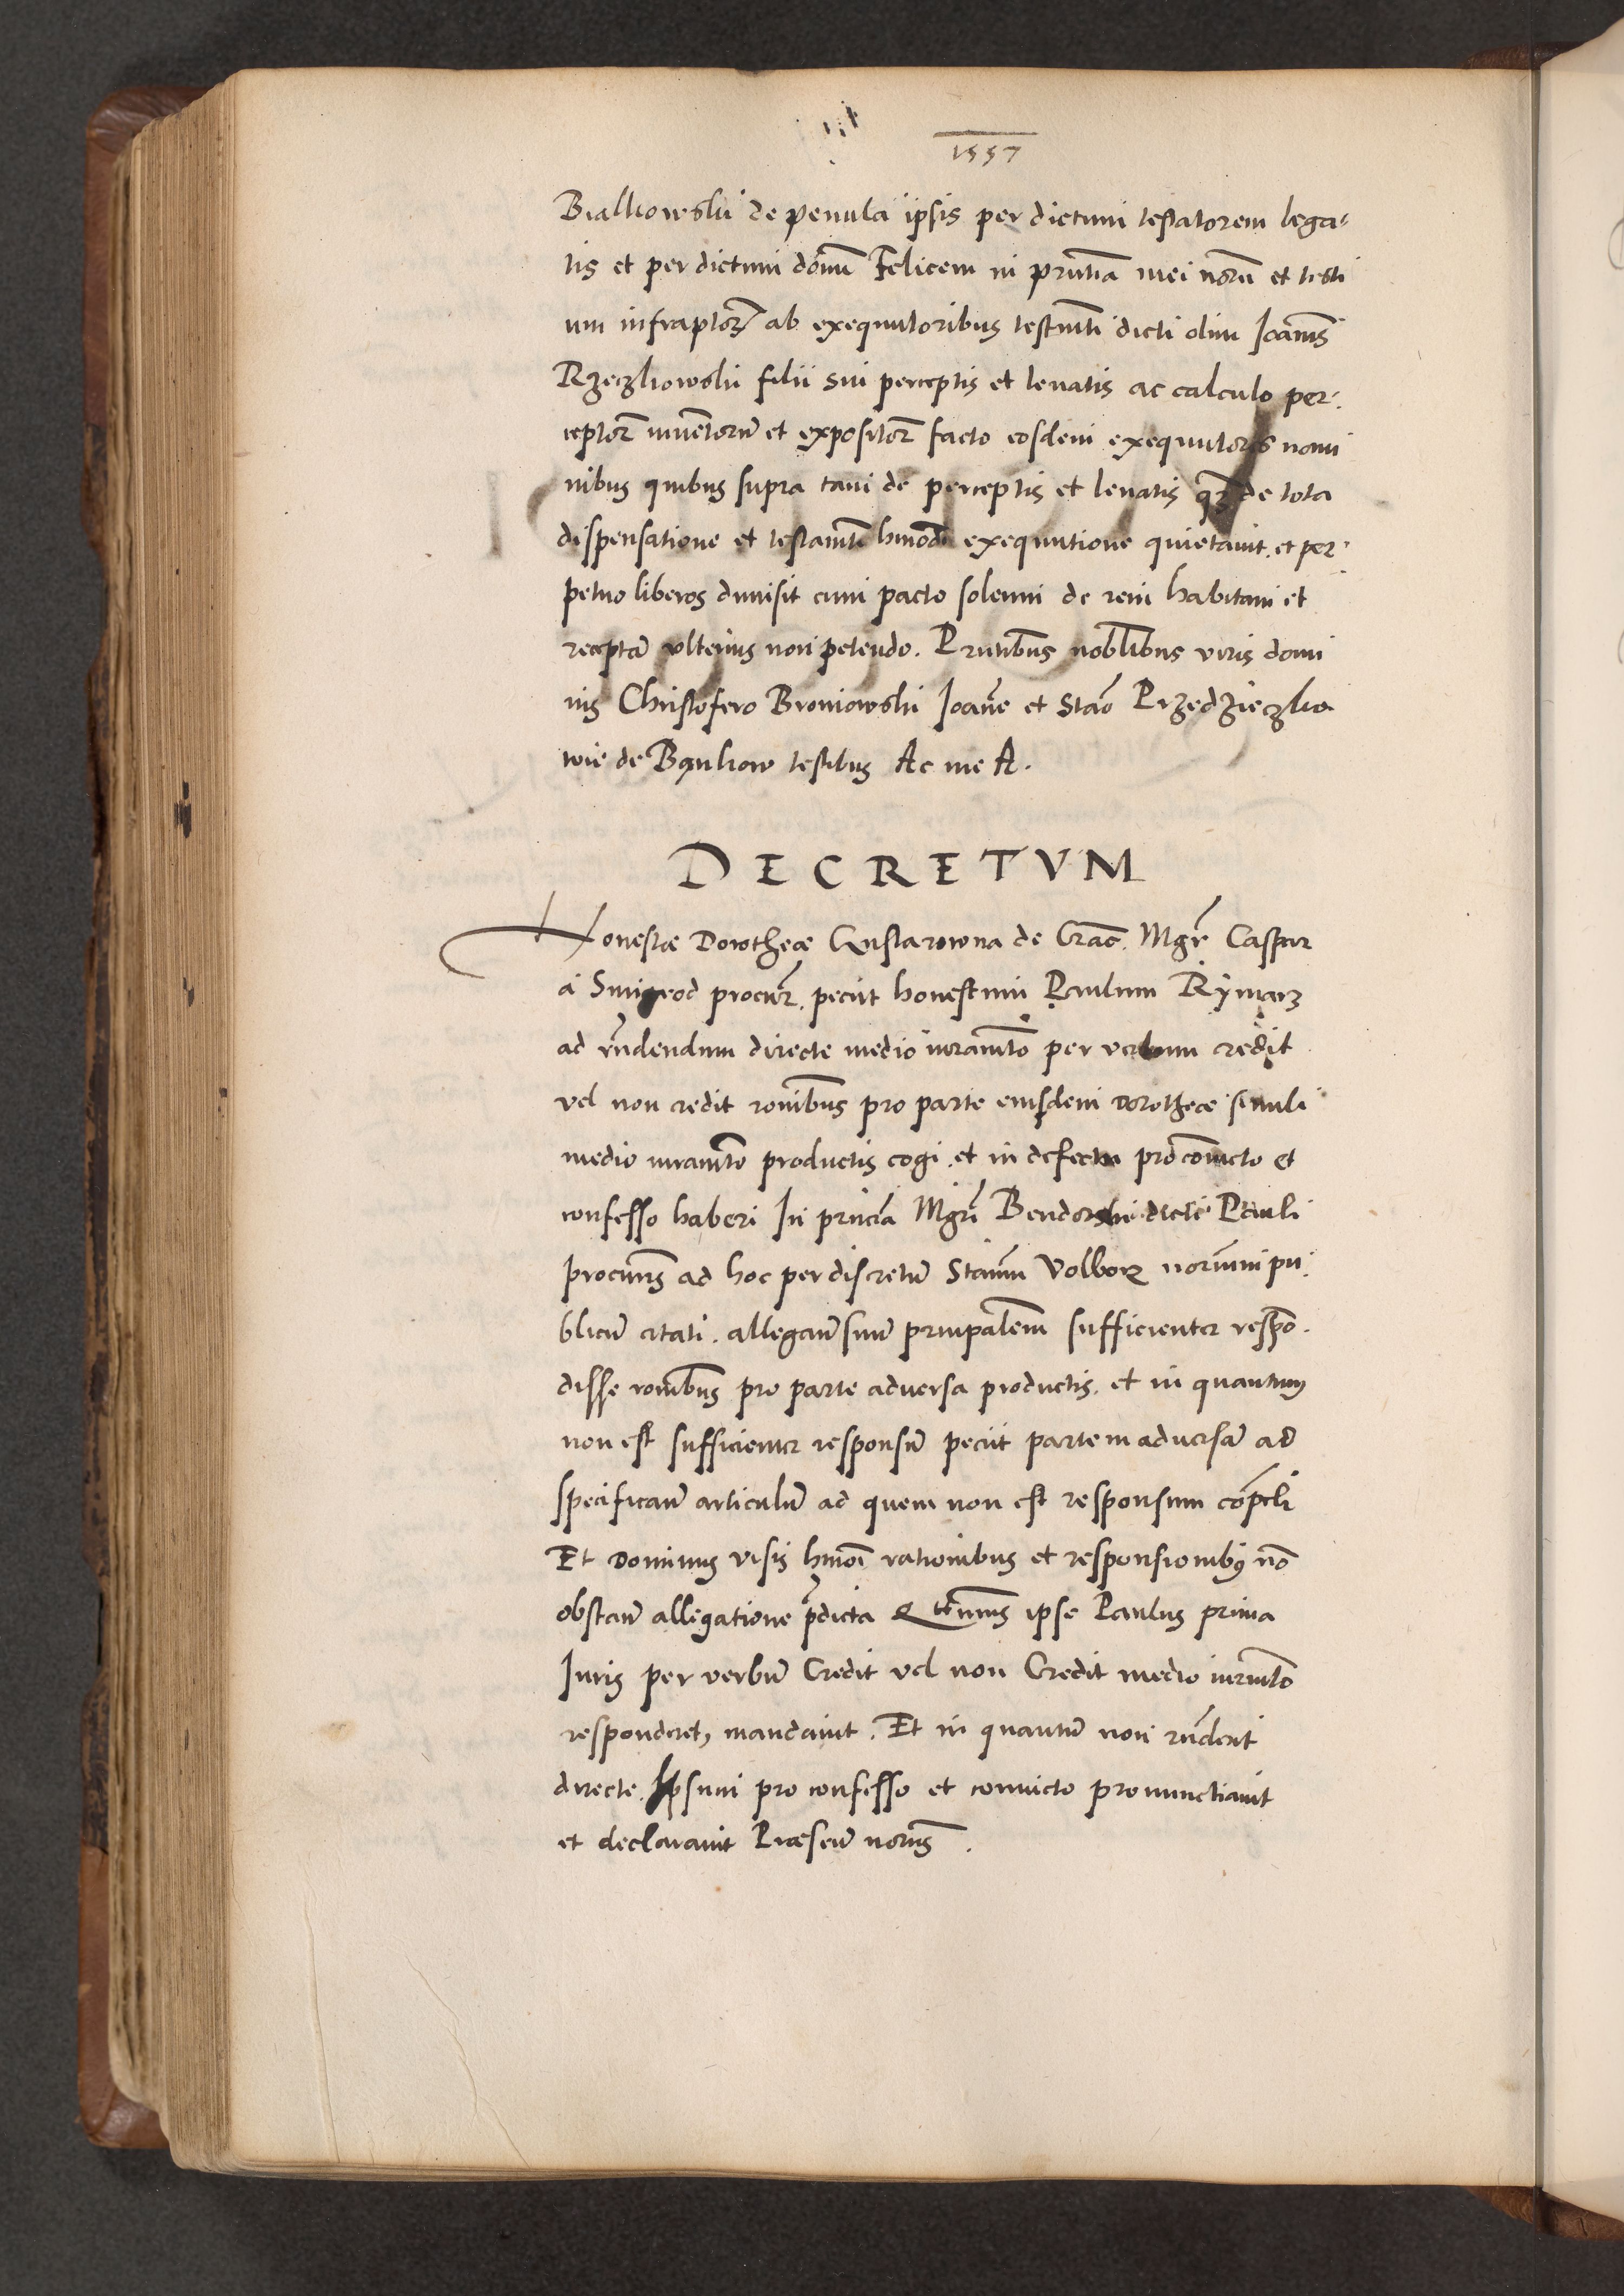 1557
Bialkowski de penula ipsis per dictum testatorem lega-
tis et per dictum domũ Felicem in prñtia mei norũ et testi
um infraptorꝝ ab exequutoribus testmti dicti olim Ioannis
Rzeczkowski filii sui perceptis et leuatis ac calculo per-
ceptorꝝ inuentorũ et expositorꝝ facto eosdem exequutores nomi
nibus quibus supra tam de perceptis et leuatis qꝫ de tota
dispensatione et testamti hmodi exequutione quietauit. et per-
petuo liberos dimisit cum pacto solenni de rem habitam et
receptã vlterius non petendo. Prñtibus noblibus viris domi
nis Christofero Broniowski Ioañe et Stão Przedzieczko
wie de Bąnkow testibus Ac me A.
DECRETVM
Honestæ Dorotheæ Gustarowna de Crac. Mgr Caspar
a Smigrod procur. peciit honestum Paulum Rymarz
ad rñdendum directe medio iuramto per verbum credit
vel non credit ronibus pro parte eiusdem Dorotheæ simili
medio iuramto productis cogi. et in defectu pro conuicto et
confesso haberi In prñcia Mgri Bendorski dicti Pauli
procuris ad hoc per discretũ Stanm Volborz norium pu
blicũ citati. allegan̄ suũ prinpalem sufficienter respõ-
disse ronibus pro parte aduersa productis. et in quantum
non est sufficienter responsũ peciit partem aduersã ad
specificanũ articulũ ad quem non est responsum cõpeli
Et Dominus visis hmoi rationibus et responsionibꝰ nõ
obstan̄ allegatione p̃dicta Qttenus ipse Paulus prima
Iuris per verbũ Credit vel non Credit medio iurmto
responderet, mandauit. Et in quantũ non rñderit
directe. Ipsum pro confesso et conuicto pronunctiauit
et declarauit Præsen̄ noriis.